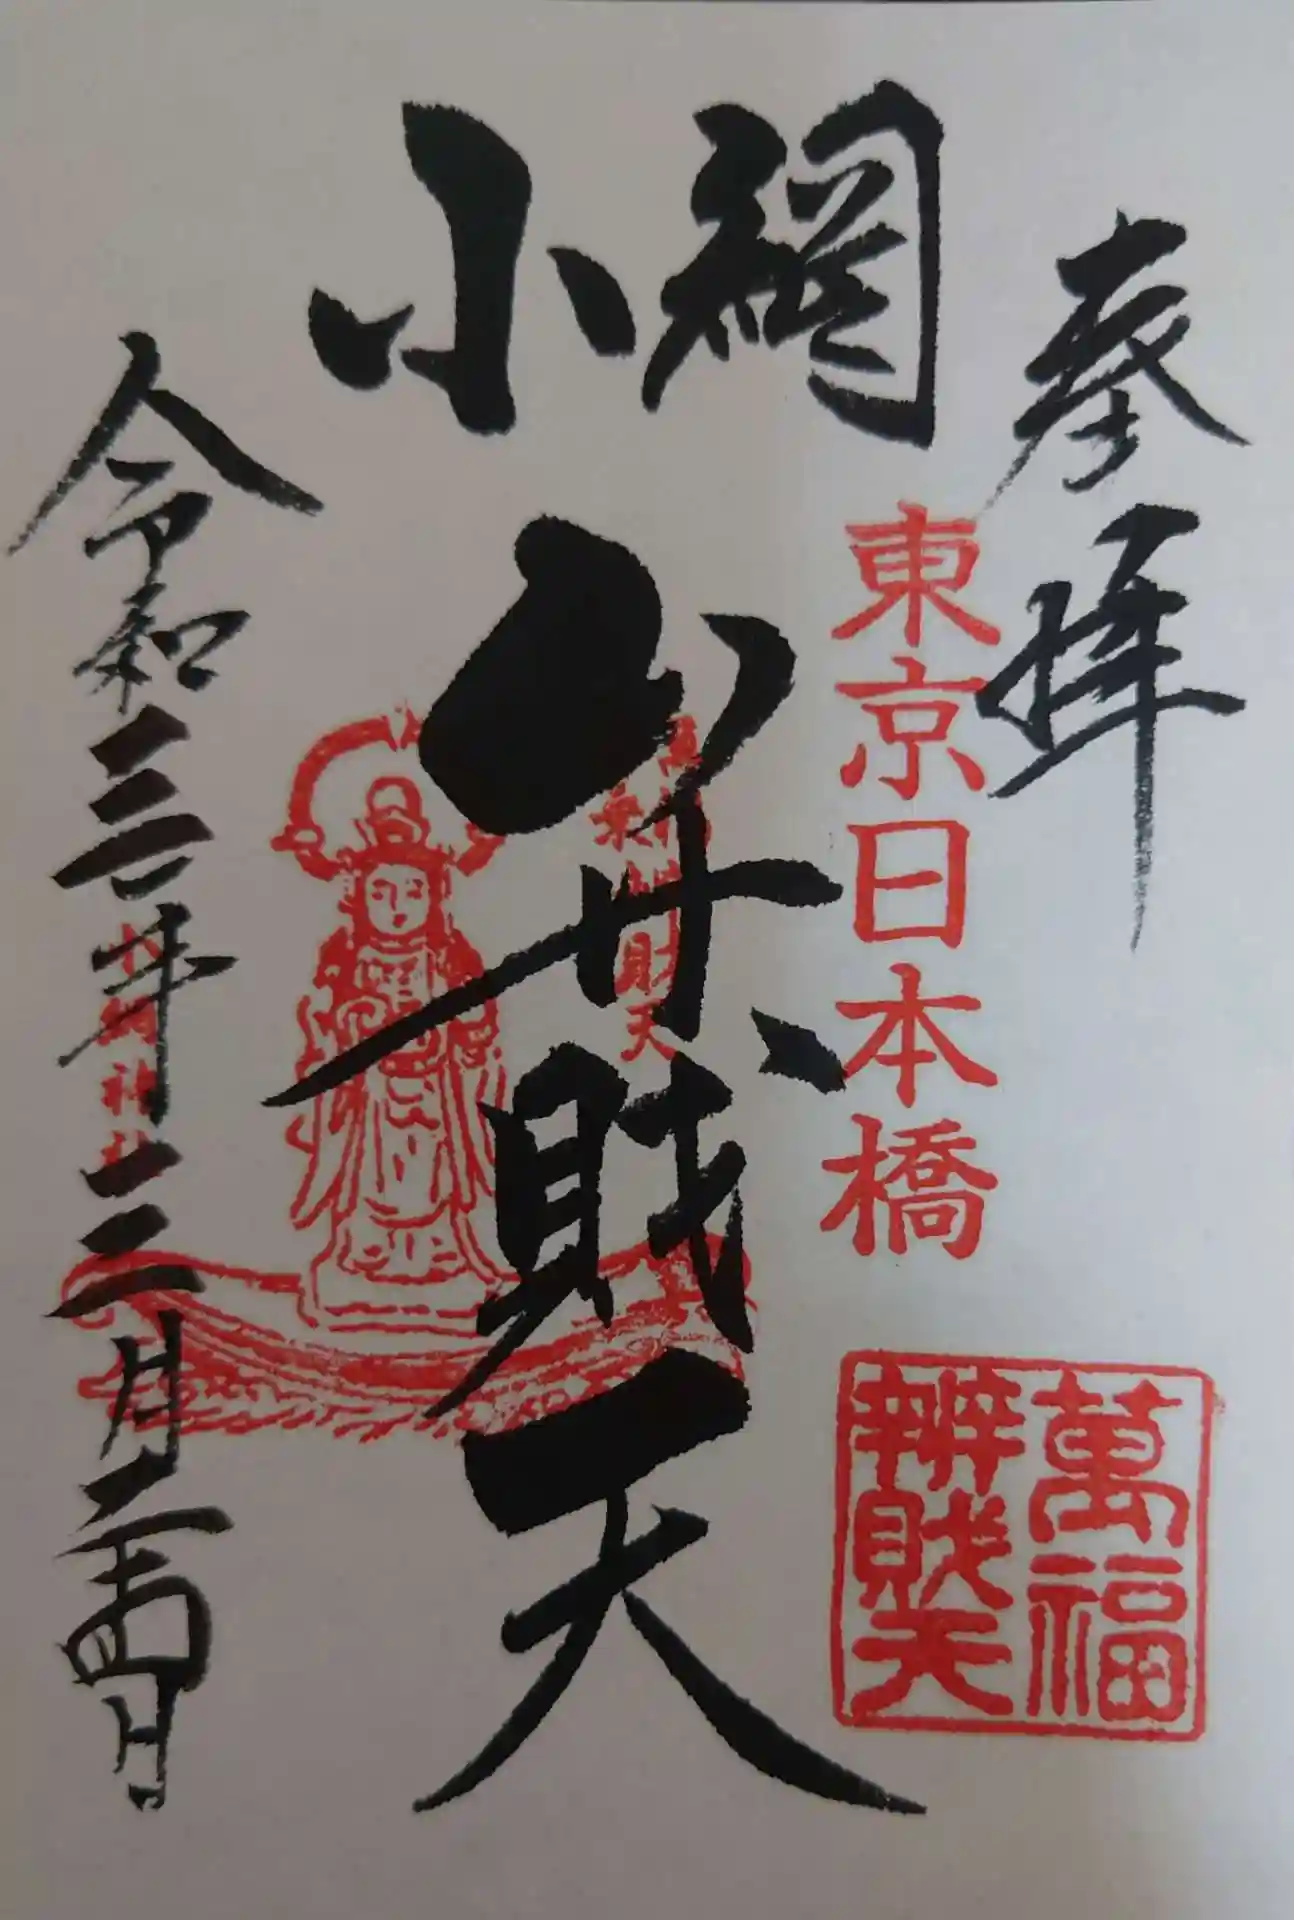 奉拝
東京日本橋
萬福
辨財天
小網
弁財天
財天
令和三年三月二十四日
小網神社